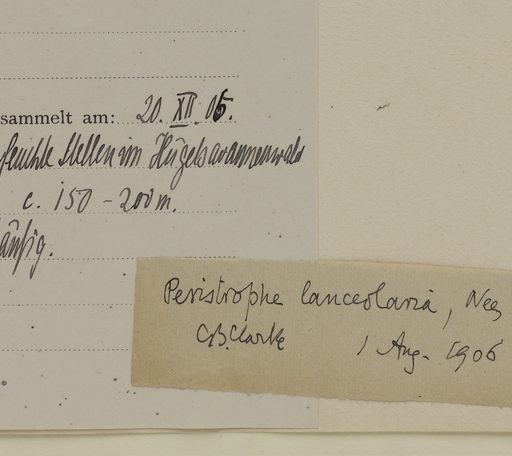 sammelt am: 20. XII. 05.
feuchte Stellen im Hügelsavannenwald
c. 150 - 200 m.
äufig.
Peristrophe lanceolaria, Nees
C.B. Clarke 1 Aug. 1906